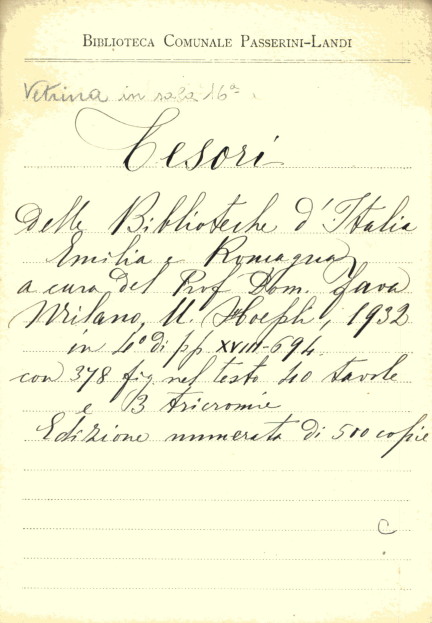 BIBLIOTECA COMUNALE PASSERINI-LANDI
Vetrina in sala 16ª
Tesori
Delle Biblioteche d'Italia
Emilia e Romagna
a cura del Prof Dom. Fava
Milano, U. Hoepli, 1932
in 4° di pp XVIII-694.
con 378 fig nel testo 40 tavole
e 3 tricromie
Edizione numerata di 500 copie
C